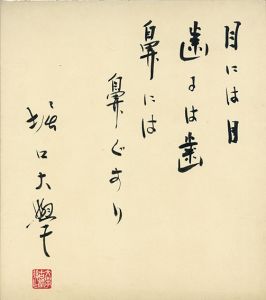 目には目
歯には歯
鼻には
鼻ぐすり
堀口大學